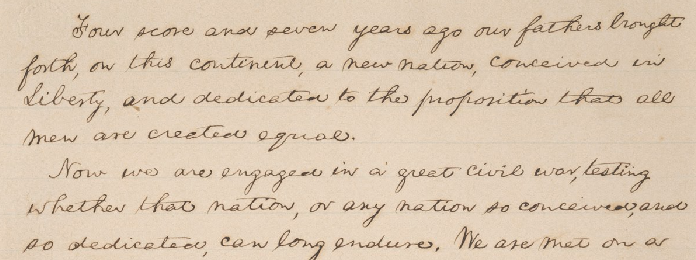 Four score and seven years ago our fathers brought
forth, on this continent, a new nation, conceived in
Liberty, and dedicated to the proposition that all
men are created equal.
Now we are engaged in a great civil war, testing
whether that nation, or any nation so conceived, and
so dedicated, can long endure. We are met on a